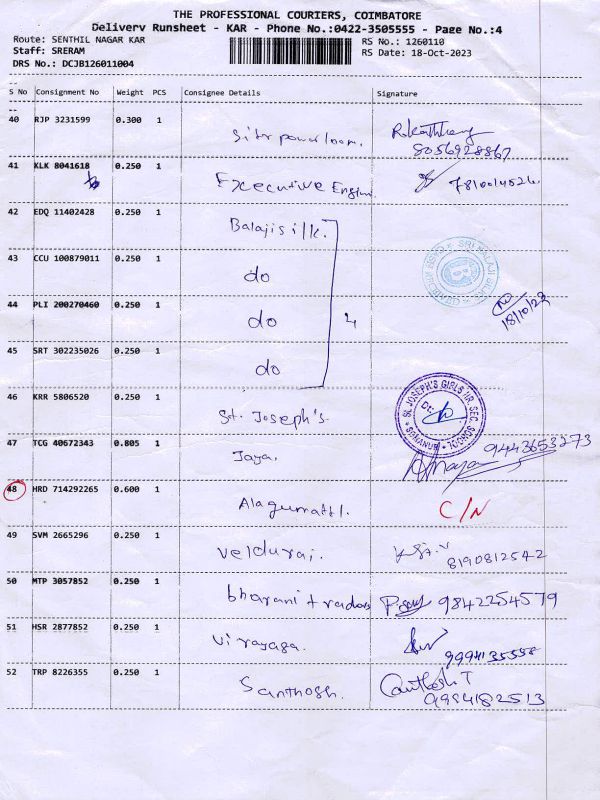 THE PROFESSIONAL COURIERS, COIMBATORE
Delivery Runsheet - KAR - Phone No.:0422-3505555 - Page No.:4
Route: SENTHIL NAGAR KAR
RS No.: 1260110
Staff: SRERAM
RS Date: 18-Oct-2023
DRS No.: DCJB126011004
S No Consignment No Weight PCS Consignee Details Signature
40 RJP 3231599 0.300 1
8056928867
41 KLK 8041618 0.250 1 Executive Engin. 7810014526.
42 EDQ 11402428 0.250 1 Balajisilk.
43 CCU 100879011 0.250 1 do
44 PLI 200270460 0.250 1 do 4 18/10/23
45 SRT 302235026 0.250 1 do
46 KRR 5806520 0.250 1 St. Joseph's. ST. JOSEPH'S GIRLS HR. SEC. SCHOOL
47 TCG 40672343 0.805 1 Jaya. 9443653273
48 HRD 714292265 0.600 1 C/N
49 SVM 2665296 0.250 1 Veldurai. 8190812542
50 MTP 3057852 0.250 1 bharani traders 9842254579
51 HSR 2877852 0.250 1 Virayaga. 9994135558
52 TRP 8226355 0.250 1 Santhosh. Santhosh T
9994182513